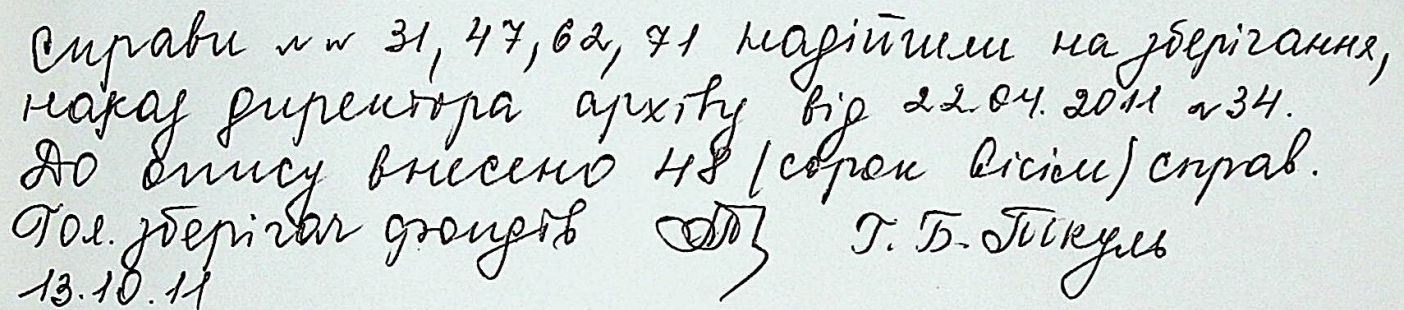 Справи №№ 31, 47, 62, 71 надійшли на зберігання,
наказ директора архіву від 22.04.2011 №34.
До опису внесено 48 (сорок вісім) справ.
Гол. зберігач фондів Г. Б. Пікуль
13.10.11